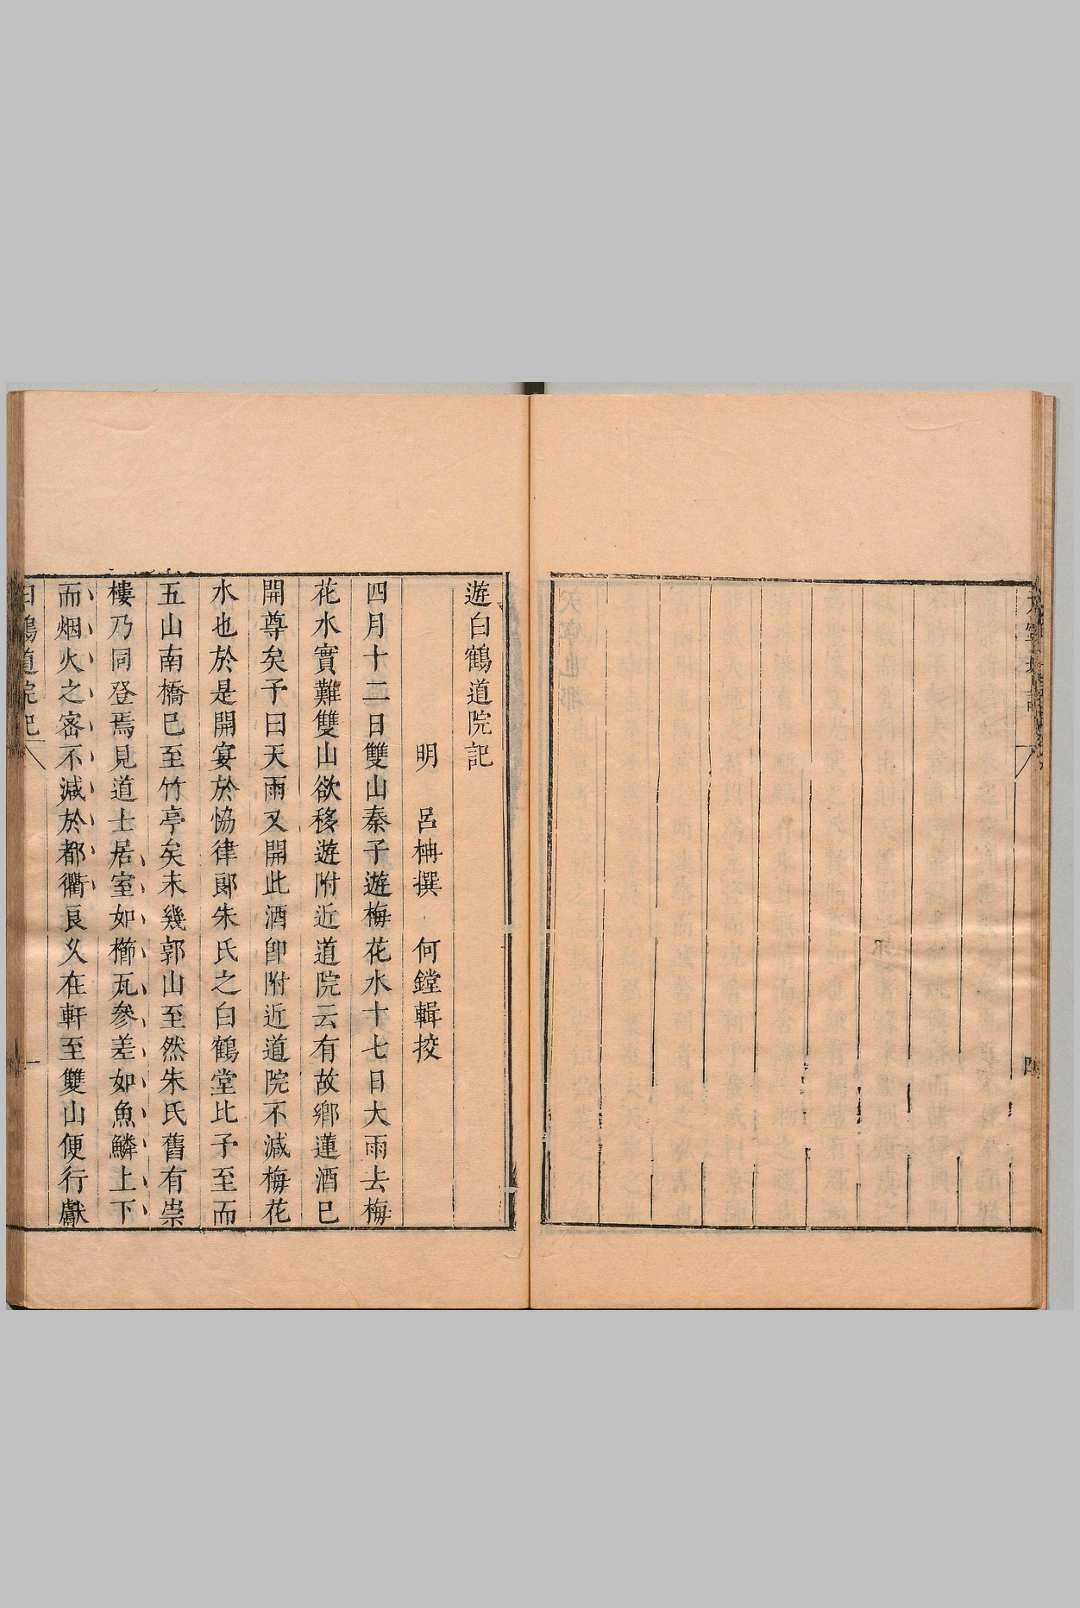 四
遊白鶴道院記
明　呂柟撰　何鏜輯挍
四月十二日雙山秦子遊梅花水十七日大雨去梅
花水實難雙山欲移遊附近道院云有故鄉蓮酒已
開尊矣予曰天雨又開此酒卽附近道院不減梅花
水也於是開宴於恊律郞朱氏之白鶴堂比予至而
五山南橋已至竹亭矣未幾郭山至然朱氏舊有崇
樓乃同登焉見道士居室如櫛瓦參差如魚鱗上下
而烟火之密不減於都衢良久在軒至雙山便行獻
白鶴道院記　一